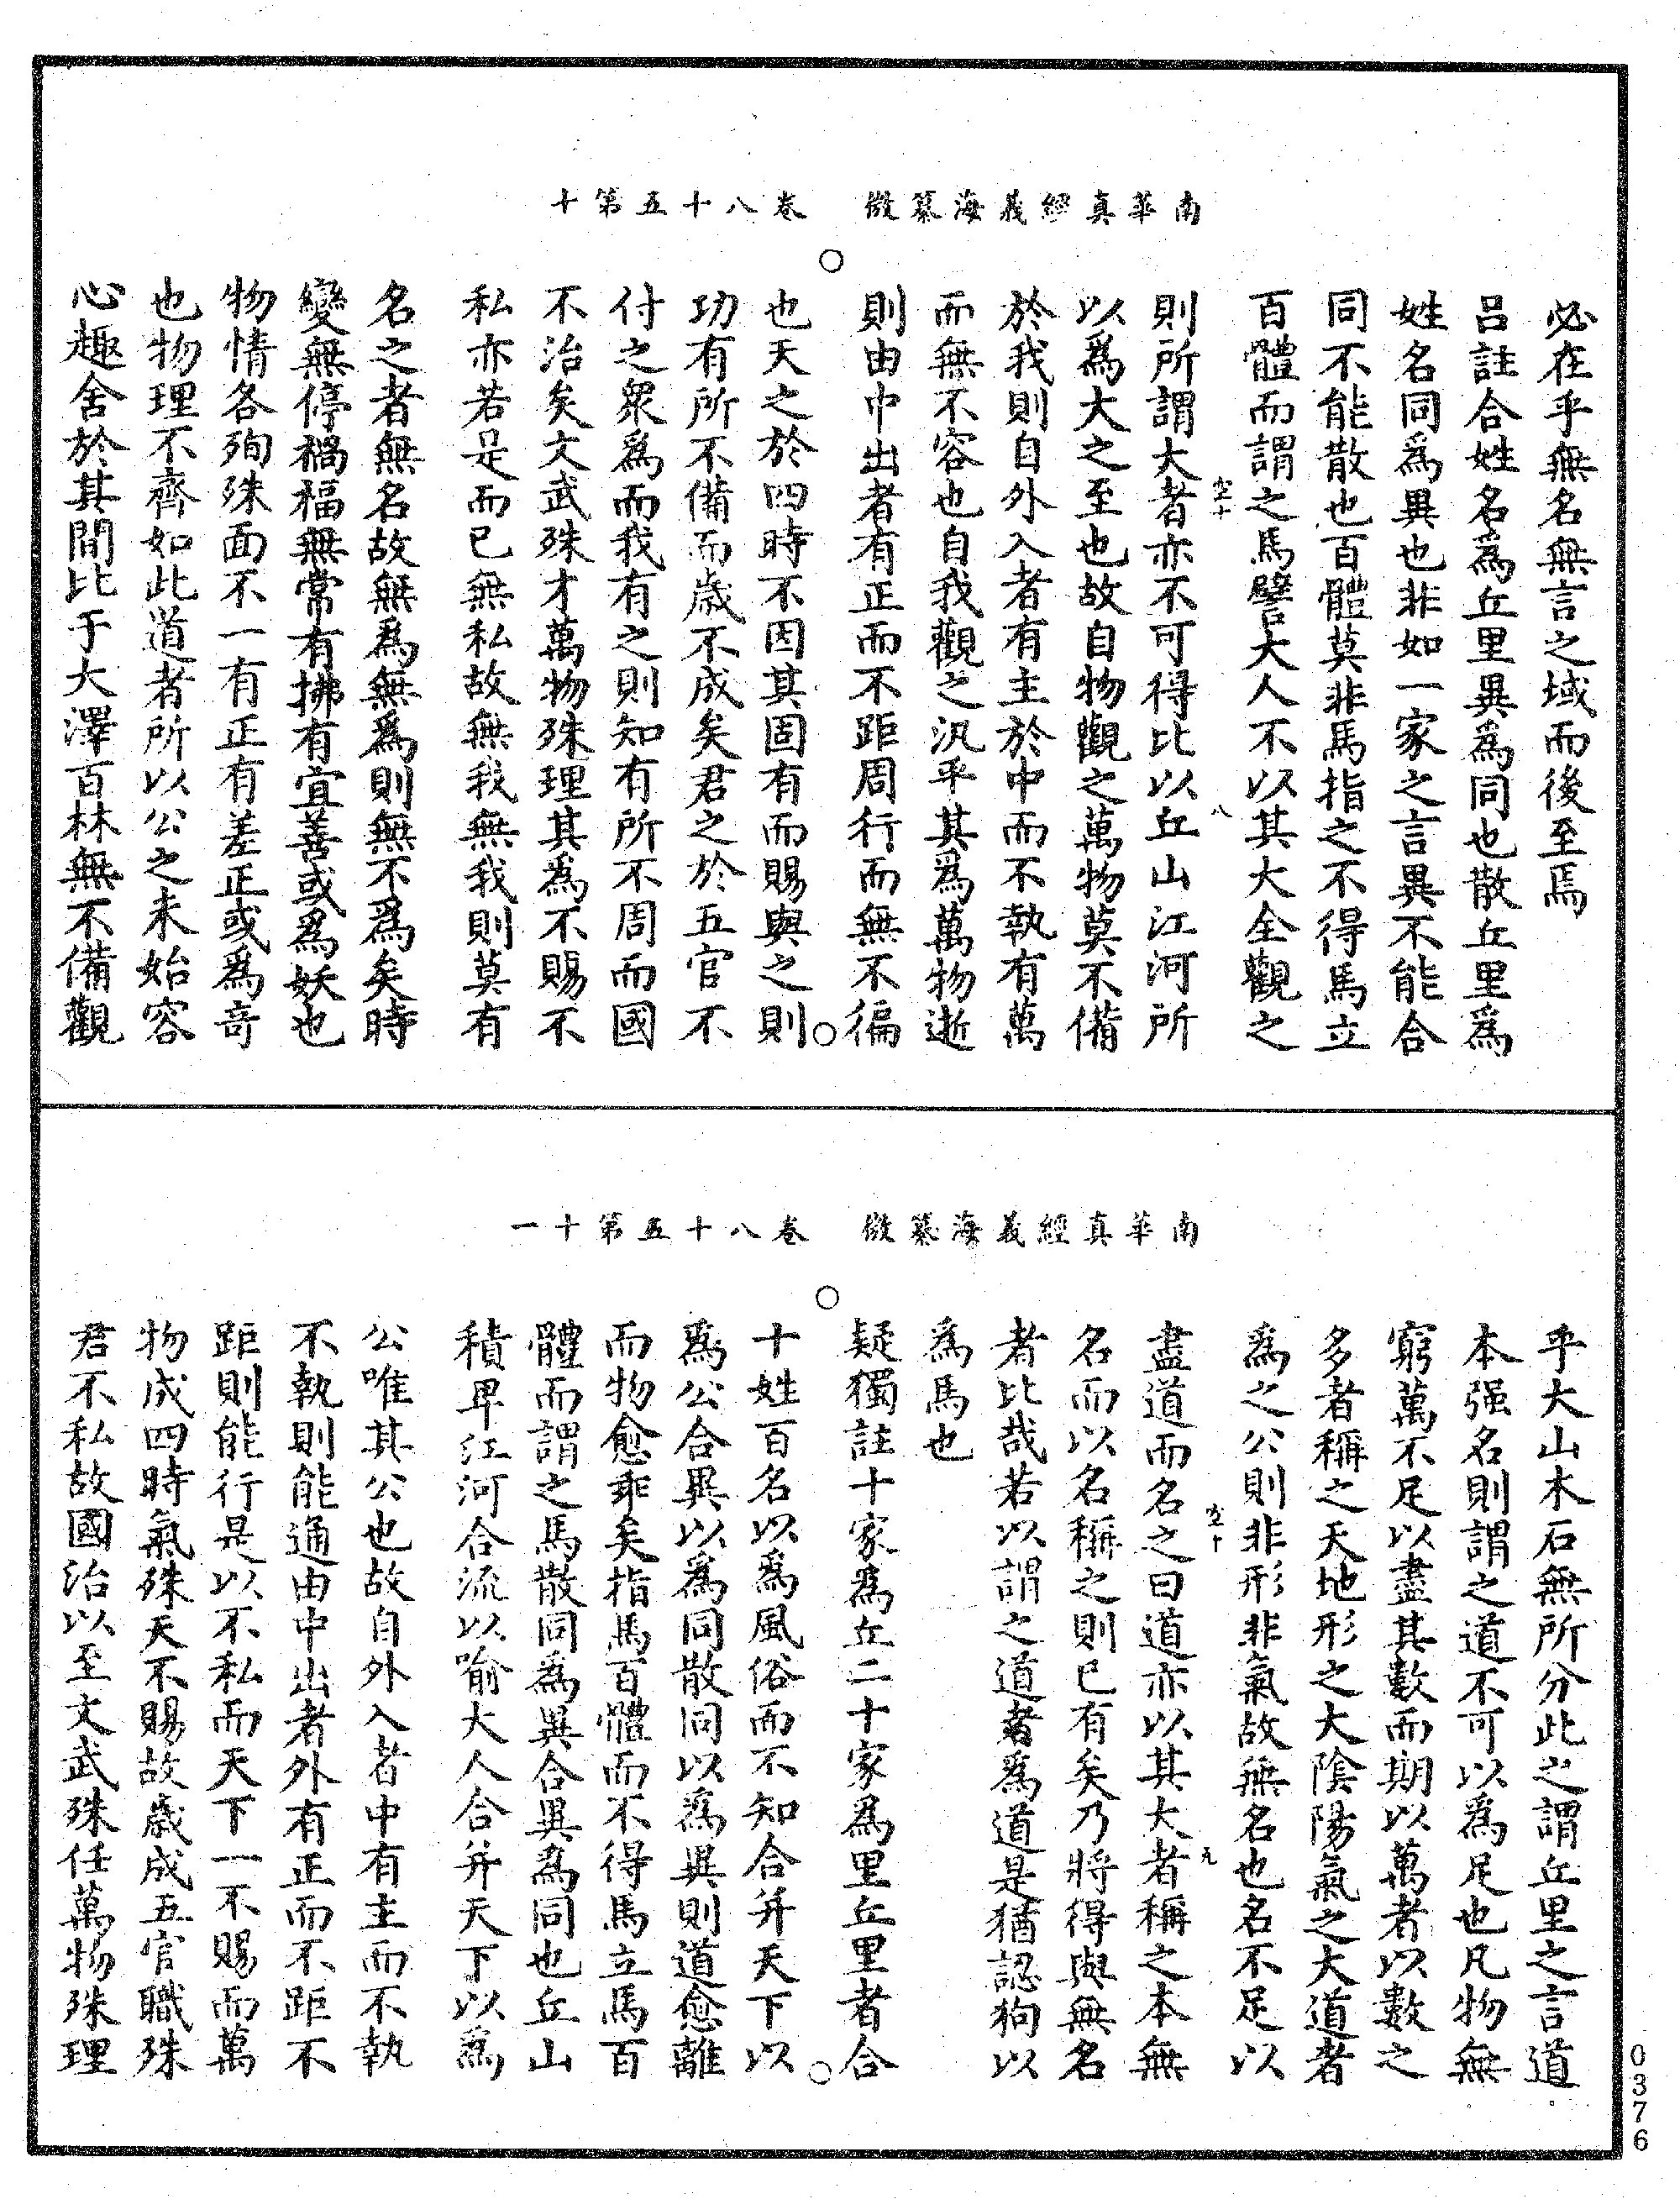 南華真經義海纂微　卷八十五第十
必在乎無名無言之域而後至焉
呂註合姓名爲丘里異爲同也散丘里爲
姓名同爲異也非如一家之言異不能合
同不能散也百體莫非馬指之不得馬立
百體而謂之馬譬大人不以其大全觀之
則所謂大者亦不可得比以丘山江河所
以爲大之至也故自物觀之萬物莫不備
於我則自外入者有主於中而不執有萬
而無不容也自我觀之汎乎其爲萬物逝
則由中出者有正而不距周行而無不徧
也天之於四時不因其固有而賜與之則
功有所不備而歲不成矣君之於五官不
付之衆爲而我有之則知有所不周而國
不治矣文武殊才萬物殊理其爲不賜不
私亦若是而已無私故無我無我則莫有
名之者無名故無爲無爲則無不爲矣時
變無停禍福無常有拂有宜善或爲妖也
物情各殉殊面不一有正有差正或爲奇
也物理不齊如此道者所以公之未始容
心趣舍於其間比于大澤百林無不備觀
南華真經義海纂微　卷八十五第十一
乎大山木石無所分此之謂丘里之言道
本强名則謂之道不可以爲足也凡物無
窮萬不足以盡其數而期以萬者以數之
多者稱之天地形之大陰陽氣之大道者
爲之公則非形非氣故無名也名不足以
盡道而名之曰道亦以其大者稱之本無
名而以名稱之則已有矣乃將得與無名
者比哉若以謂之道者爲道是猶認狗以
爲馬也
疑獨註十家爲丘二十家爲里丘里者合
十姓百名以爲風俗而不知合并天下以
爲公合異以爲同散同以爲異則道愈離
而物愈乖矣指馬百體而不得馬立馬百
體而謂之馬散同爲異合異爲同也丘山
積卑江河合流以喻大人合并天下以爲
公唯其公也故自外入者中有主而不執
不執則能通由中出者外有正而不距不
距則能行是以不私而天下一不賜而萬
物成四時氣殊天不賜故歲成五官職殊
君不私故國治以至文武殊任萬物殊理
0376